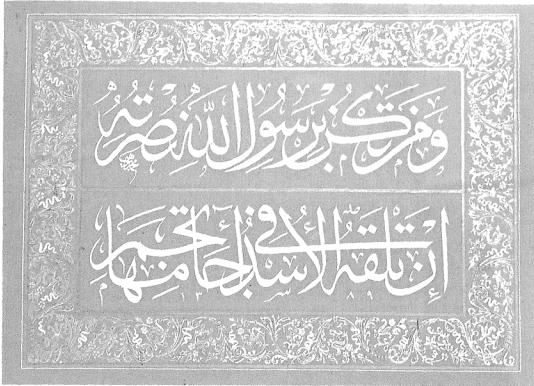 وَمَنْ تَكُنْ بِرَسُولِ اللّٰهِ نُصْرَتُهُ
إِنْ تَلْقَهُ الْأُسْدُ فِي آجَامِهَا تَجِمِ